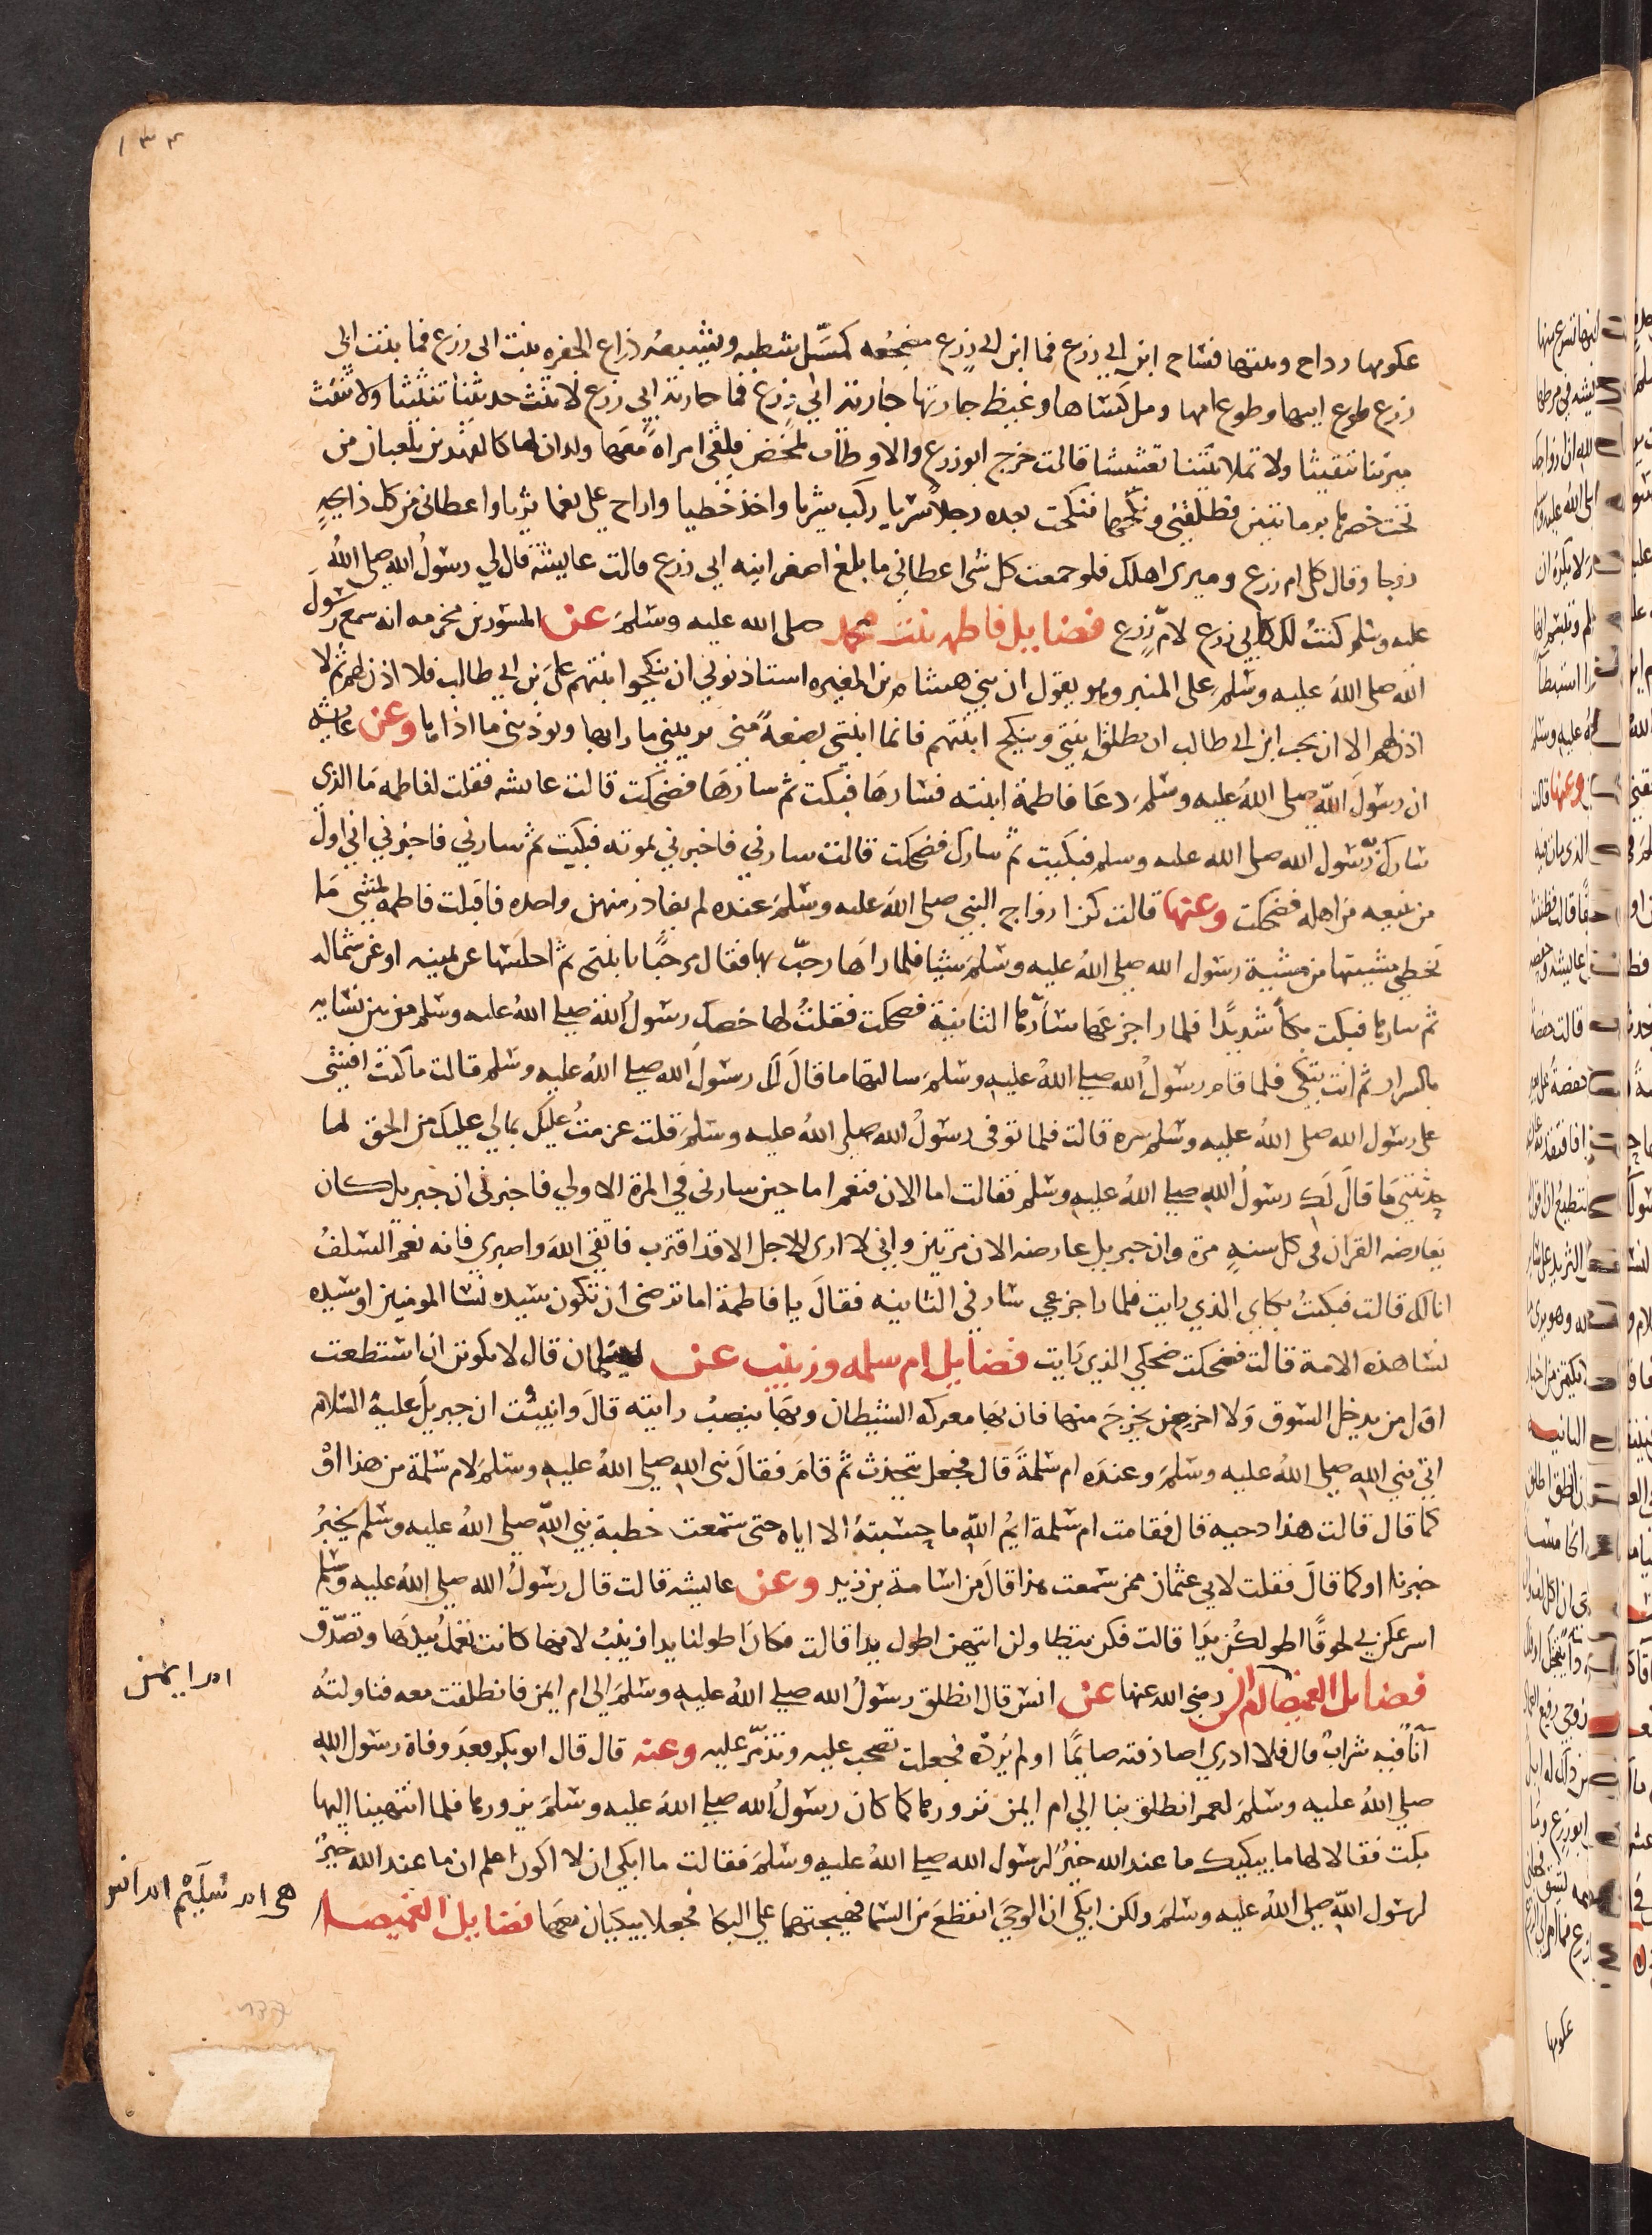 ١٣٤
عكومها رداح وبيتها فساح ابن ابي زرع فما ابن ابي زرع مضجعه كمسل شطبه ويشبعه ذراع الجفره بنت ابي زرع فما بنت ابي
زرع طوع ابيها وطوع امها ومل كسائها وغيظ جارتها جارية ابي زرع فما جارية ابي زرع لا تبث حديثنا تبثيثا ولا تنقث
ميرتنا تنقيثا ولا تملا بيتنا تعشيشا قالت خرج ابوزرع والاوطاب تمخض فلقي امراة معها ولدان لها كالفهدين يلعبان من
تحت خصرها برمانتين فطلقني ونكحها فنكحت بعده رجلا سريا ركب شريا واخذ خطيا واراح علي نعما ثريا واعطاني من كل ذابحة
زوجا وقال كلي ام زرع وميري اهلك فلو جمعت كل شي اعطاني ما بلغ اصغر انيه ابي زرع قالت عايشة قال لي رسول الله صلى الله
عليه وسلم كنت لك كابي زرع لام زرع فضايل فاطمه بنت محمد صلى الله عليه وسلم عن المسور بن مخرمه انه سمع رسول
الله صلى الله عليه وسلم على المنبر وهو يقول ان بني هشام بن المغيره استاذنوني ان ينكحوا ابنتهم علي بن ابي طالب فلا اذن لهم ثم لا
اذن لهم الا ان يحب ابن ابي طالب ان يطلق بنتي وينكح ابنتهم فانما ابنتي بضعة مني يريبني ما رابها ويوذيني ما اذاها وعن عايشه
ان رسول الله صلى الله عليه وسلم دعا فاطمة ابنته فسارها فبكت ثم سارها فضحكت قالت عايشه فقلت لفاطمه ما الذي
سارك رسول الله صلى الله عليه وسلم فبكيت ثم سارك فضحكت قالت سارني فاخبرني بموته فبكيت ثم سارني فاخبرني اني اول
من يتبعه من اهله فضحكت وعنها قالت كن ازواج النبي صلى الله عليه وسلم عنده لم يغادر منهن واحده فاقبلت فاطمه تمشي ما
تخطي مشيتها من مشية رسول الله صلى الله عليه وسلم شيا فلما راها رحب بها فقال مرحبا بابنتي ثم اجلسها عن يمينه او عن شماله
ثم سارها فبكت بكأ شديدا فلما را جزعها سارها الثانية فضحكت فقلت لها خصك رسول الله صلى الله عليه وسلم من بين نسايه
بالسرار ثم انت تبكي فلما قام رسول الله صلى الله عليه وسلم سالتها ما قال لك رسول الله صلى الله عليه وسلم قالت ما كنت افشي
على رسول الله صلى الله عليه وسلم سره قالت فلما توفي رسول الله صلى الله عليه وسلم قلت عزمت عليك بمالي عليك من الحق لما
حدثتني ما قال لك رسول الله صلى الله عليه وسلم فقالت اما الان فنعم اما حين سارني في المرة الاولي فاخبرني ان جبريل كان
يعارضه القران في كل سنه مرة وان جبريل عارضه الان مرتين واني لا ارى الاجل الا قد اقترب فاتقي الله واصبري فانه نعم السلف
انا لك قالت فبكيت بكاي الذي رايت فلما را جزعي سارني الثانيه فقال يا فاطمة اما ترضي ان تكون سيده نسا المومنين او سيده
نسا هذه الامة قالت فضحكت ضحكي الذي رايت فضايل ام سلمه وزينب عن سلمان قال لا تكونن ان استطعت
اول من يدخل السوق ولا اخر من يخرج منها فان بها معركه الشيطان وبها ينصب رايته قال وانبيت ان جبريل عليه السلام
اتى نبي الله صلى الله عليه وسلم وعنده ام سلمة قال فجعل يتحدث ثم قام فقال نبي الله صلى الله عليه وسلم لام سلمة من هذا او
كما قال قالت هذا دحيه قال فقامت ام سلمة ايم الله ما حسبته الا اياه حتى سمعت خطبة نبي الله صلى الله عليه وسلم يخبر
خبرنا او كما قال فقلت لابي عثمان ممن سمعت هذا قال من اسامة بن زيد وعن عايشه قالت قال رسول الله صلى الله عليه وسلم
اسرعكن بي لحوقا اطولكن يدا قالت فكن يتطا ولن ايتهن اطول يدا قالت فكان اطولنا يدا زينب لانها كانت تعمل بيدها وتصدق
فضايل رضي الله عنها عن انس قال انطلق رسول الله صلى الله عليه وسلم الى ام ايمن فانطلقت معه فناولته
انأ فيه شراب قال فلا ادري اصادفته صايما او لم يرده فجعلت تصخب عليه وتذمر عليه وعنه قال قال ابو بكر بعد وفاة رسول الله
صلى الله عليه وسلم لعمر انطلق بنا الى ام ايمن نزورها كما كان رسول الله صلى الله عليه وسلم يزورها فلما انتهينا اليها
بكت فقالا لها ما يبكيك ما عند الله خير لرسول الله صلى الله عليه وسلم فقالت ما ابكي ان لا اكون اعلم ان ما عند الله خير
لرسول الله صلى الله عليه وسلم ولكن ابكي ان الوحي انقطع من السما فهيجتهما على البكا فجعلا يبكيان معها فضايل الغميصا
ام ايمن
هي ام سليم ام انس
عكومها